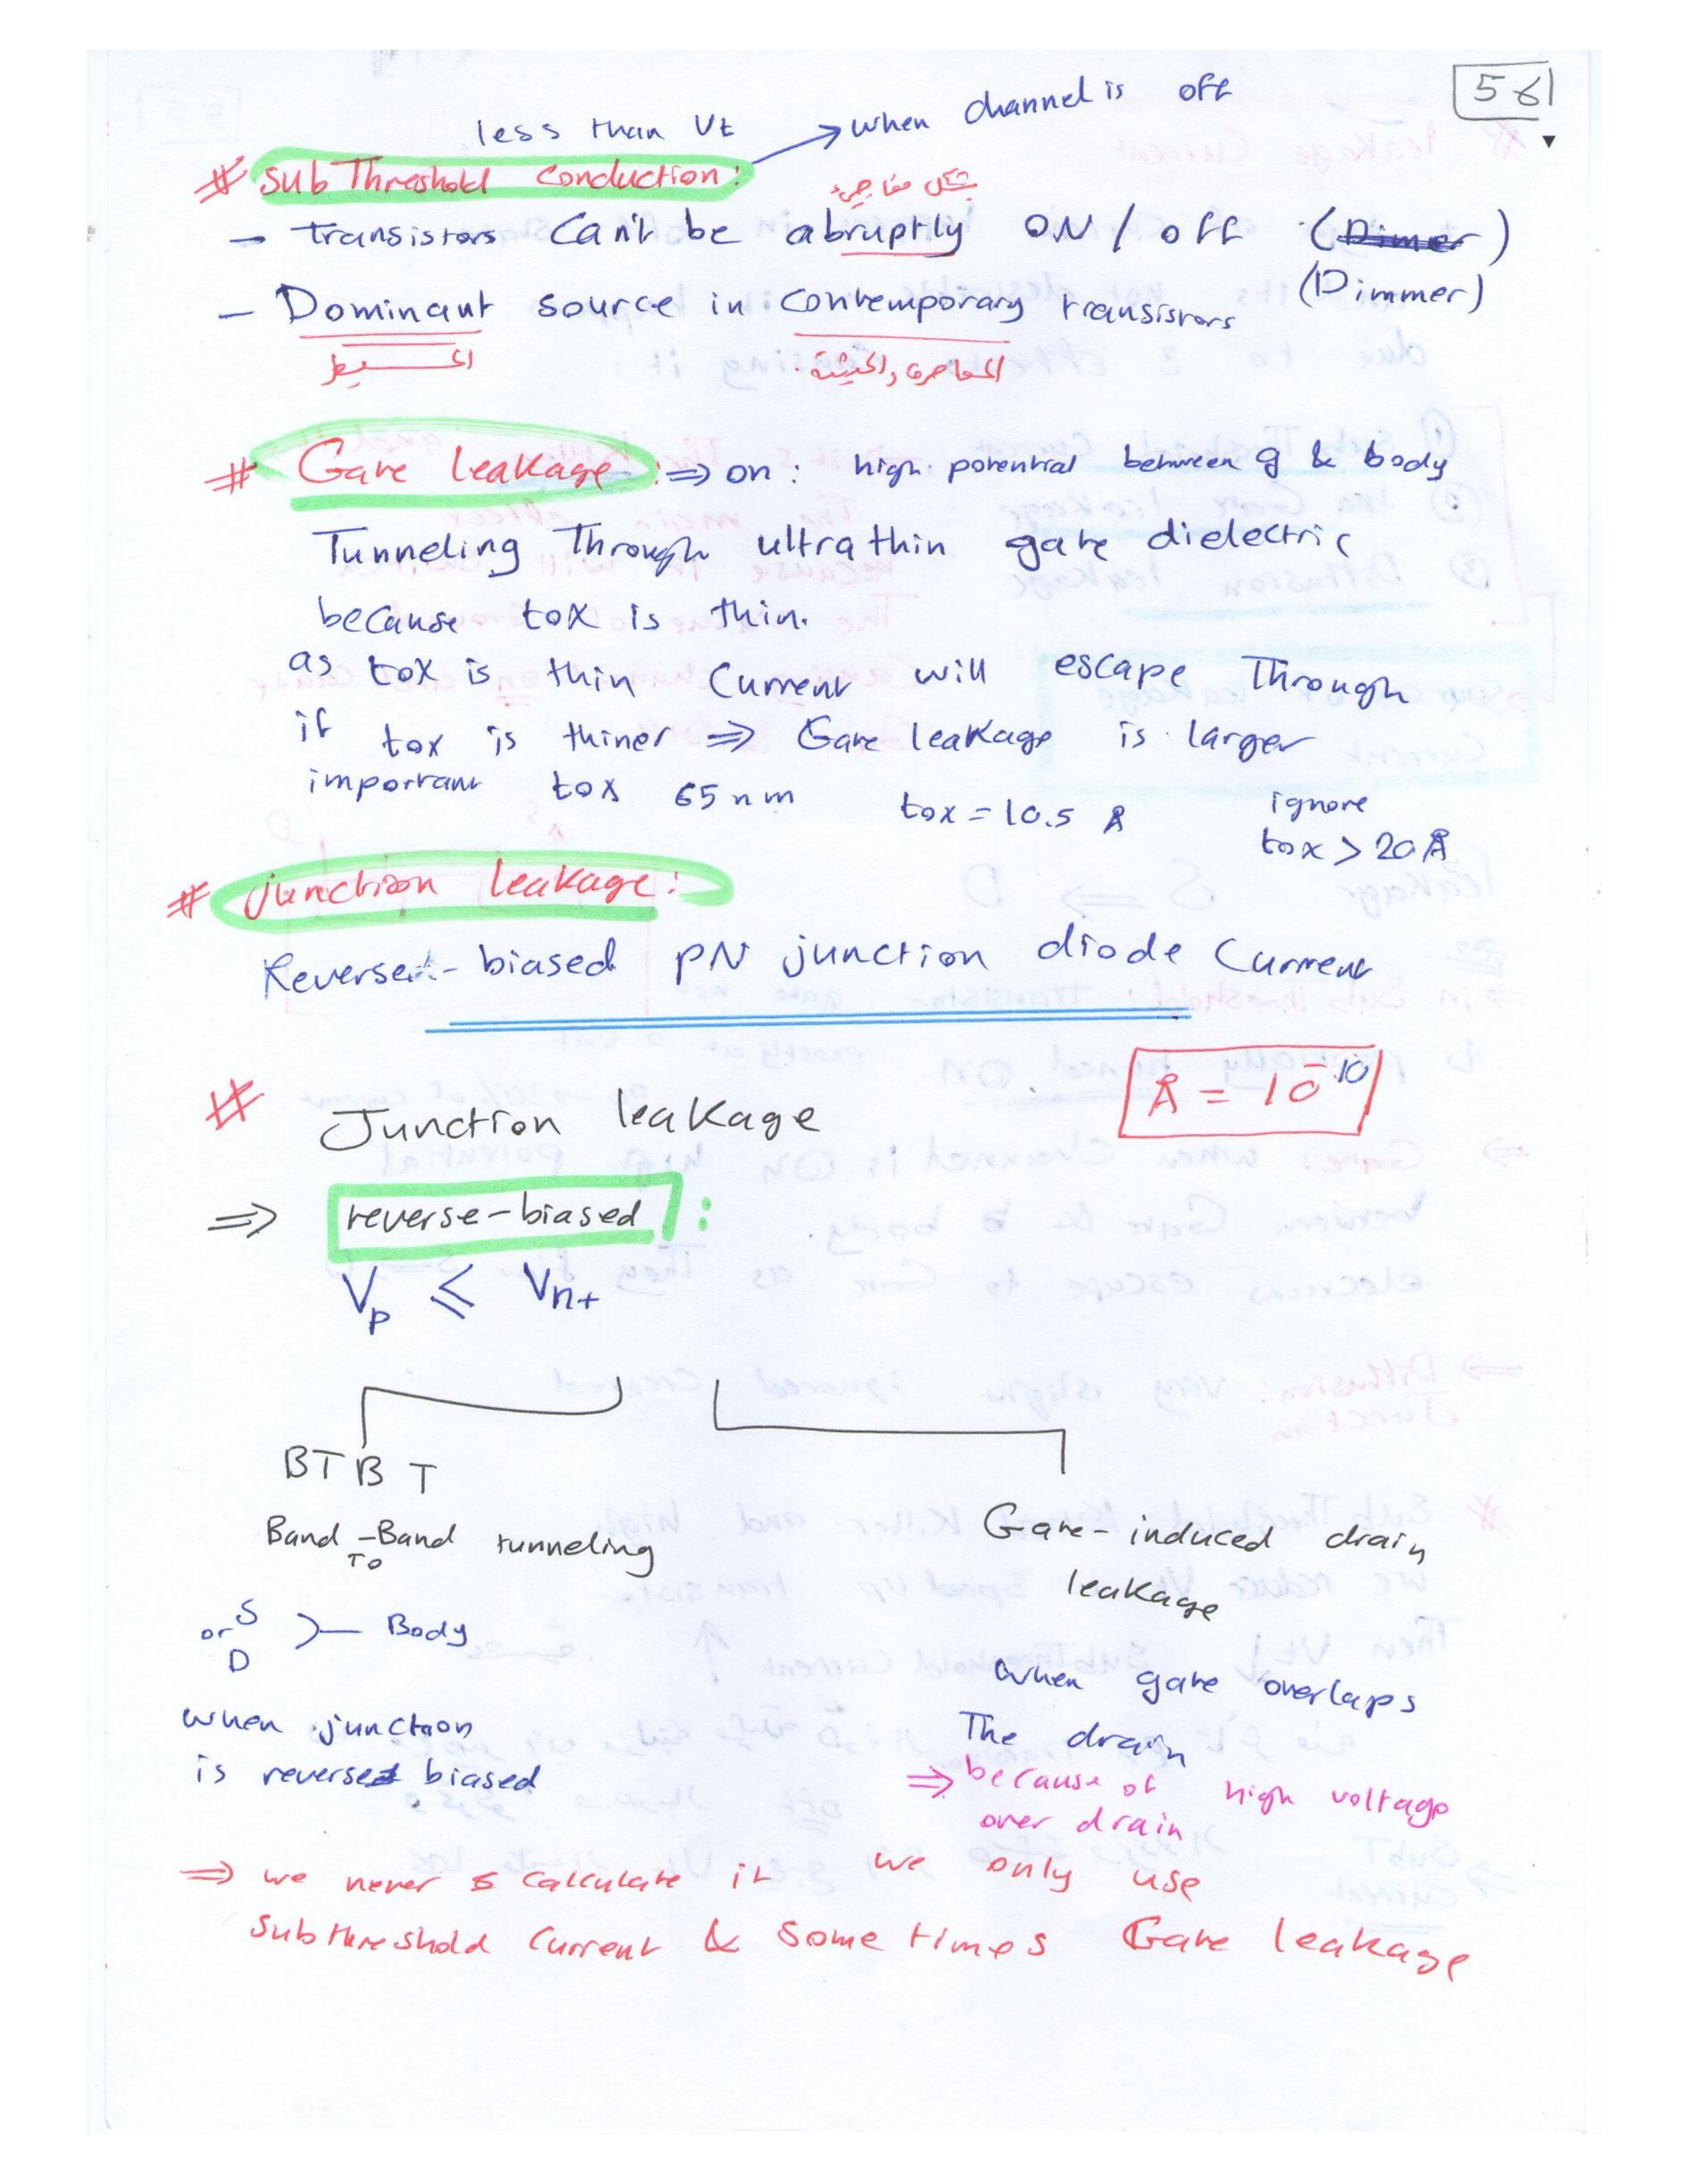 56
less than Vt → when channel is off
# Sub Threshold Conduction:
بشكل مفاجئ
- transistors Can't be abruptly ON / off (Dimer)
(Dimmer)
- Dominant source in Contemporary transistors
المسيطر
المعاصرة والحديثة
# Gate leakage: ⇒ on: high potential between g & body
Tunneling Through ultrathin gate dielectric
because tox is thin.
as tox is thin Current will escape Through
if tox is thiner ⇒ Gate leakage is larger
important tox 65 nm tox = 10.5 Å ignore
tox > 20 Å
# junction leakage:
Reversed-biased PN junction diode Current
Å = 10^-10
# Junction leakage
⇒ reverse-biased :
Vp ≤ Vn+
BTBT
Band-Band tunneling
To
Gate-induced drain
leakage
or S
D >— Body
when junction
is reversed biased
when gate overlaps
The drain
⇒ because of high voltage
over drain
⇒ we never calculate it we only use
Subthreshold Current & Some times Gate leakage